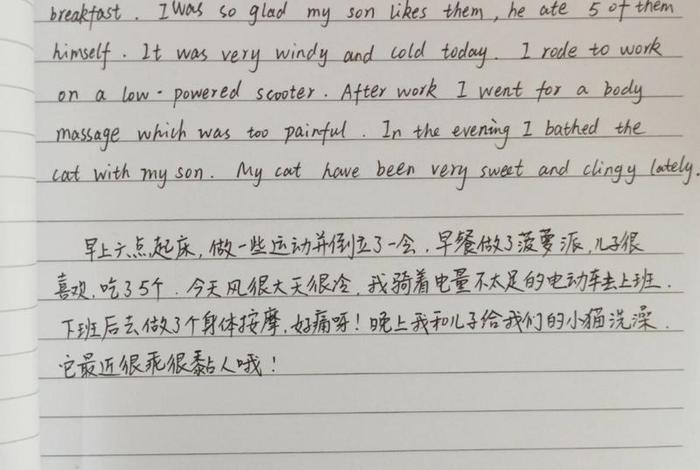 breakfast. I was so glad my son likes them, he ate 5 of them
himself. It was very windy and cold today. I rode to work
on a low-powered scooter. After work I went for a body
massage which was too painful. In the evening I bathed the
cat with my son. My cat have been very sweet and clingy lately.
早上六点起床，做一些运动并倒立了一会．早餐做了菠萝派，儿子很
喜欢，吃了5个．今天风很大天很冷，我骑着电量不太足的电动车去上班．
下班后去做了个身体按摩，好痛呀！晚上我和儿子给我们的小猫洗澡．
它最近很乖很黏人哦！